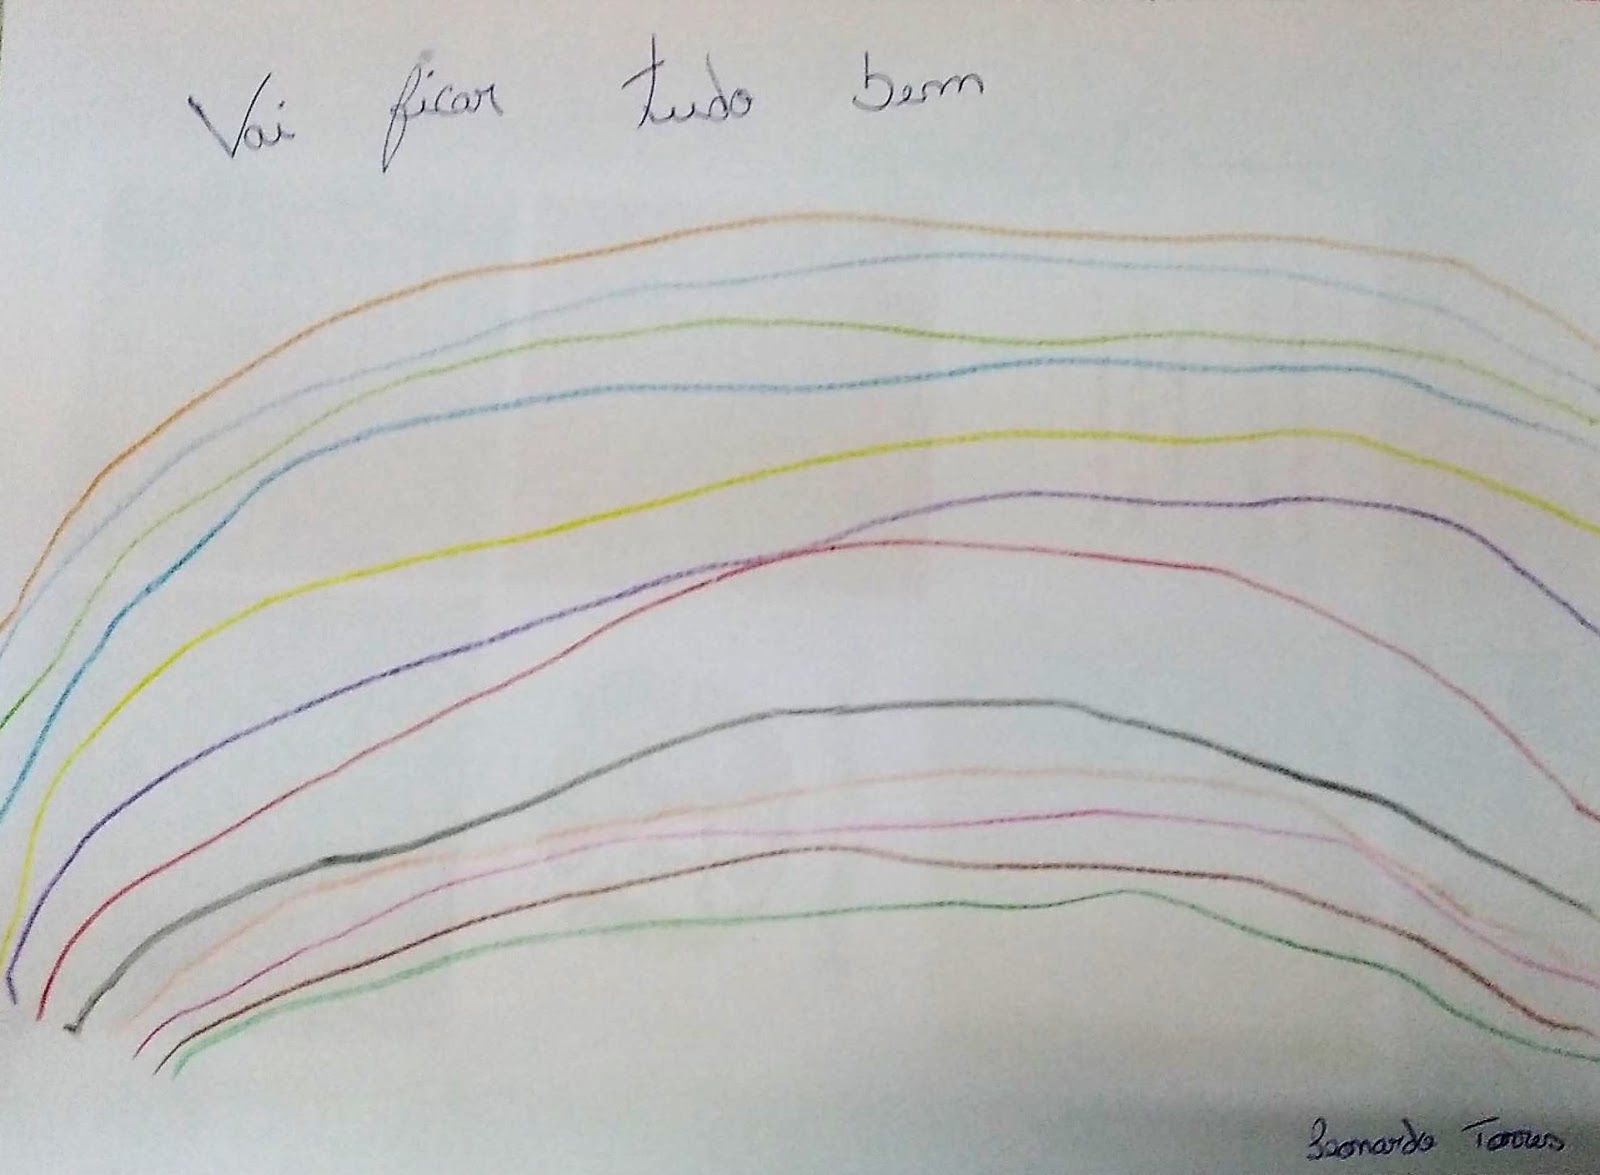 Vai ficar tudo bem
Leonardo Torres